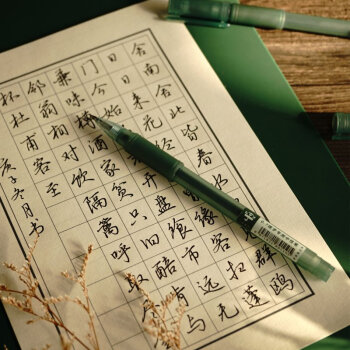 舍南舍北皆春群鸥
日日来花径不曾缘客扫蓬
门今始为君开盘飧市远无
兼味樽酒家贫只旧醅肯与
邻翁相对饮隔篱呼取尽余
杯杜甫客至
庚子冬月书